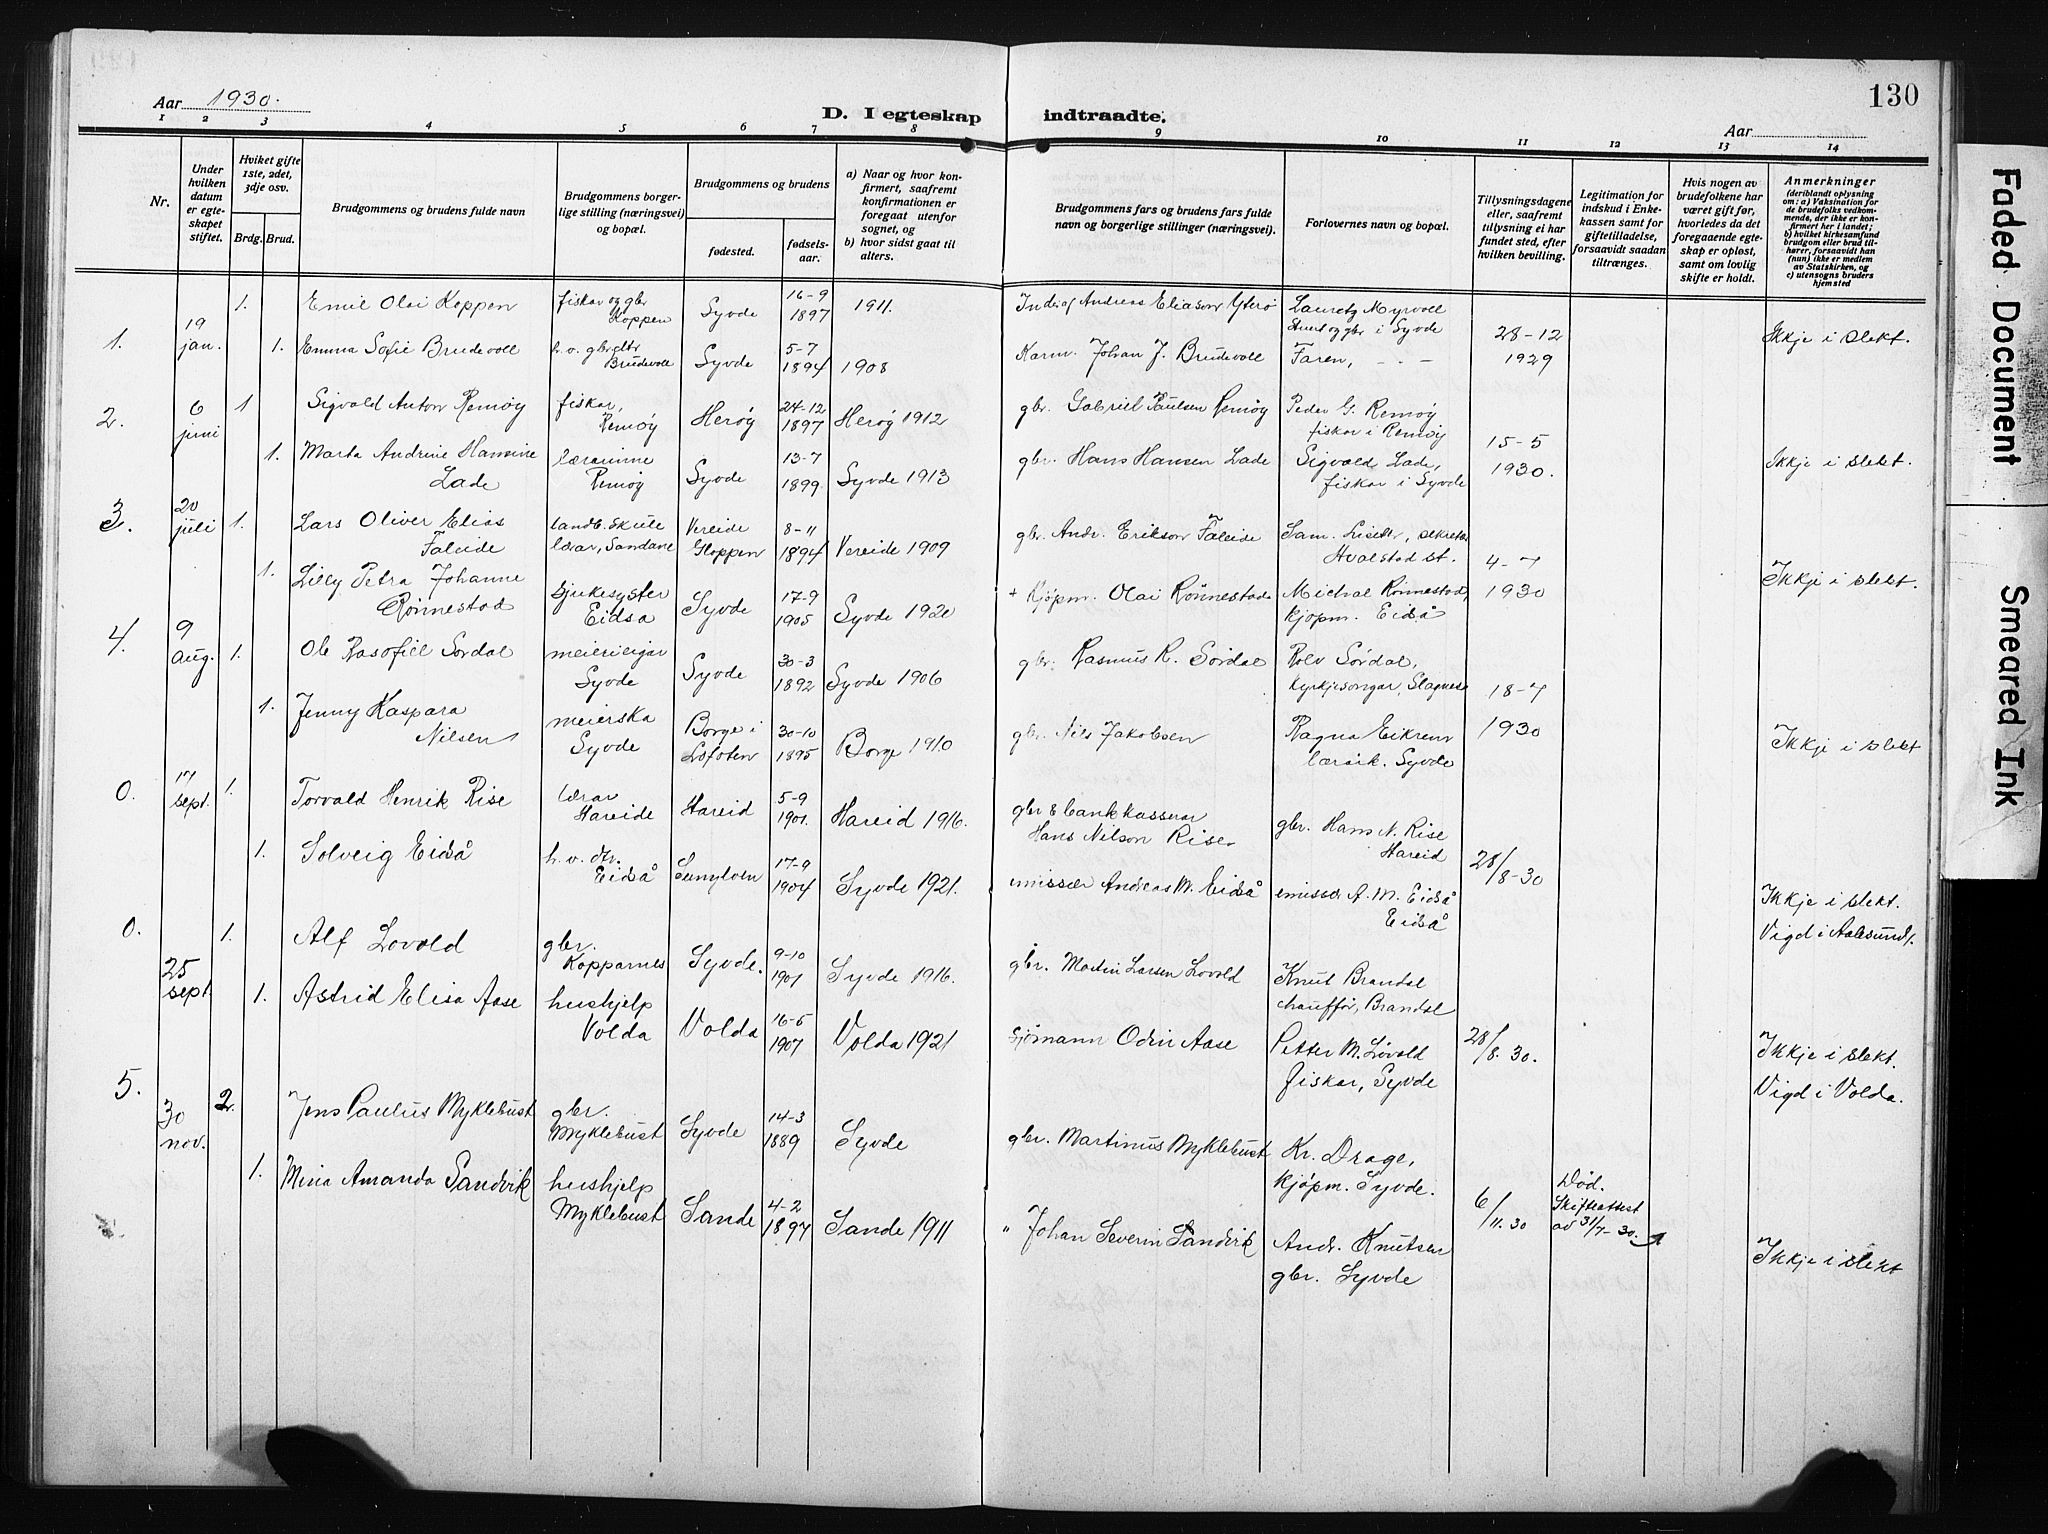 130
Aar 1930.
D. I egteskap indtraadte.
Aar
1 2 3 4 5 6 7 8 9 10 11 12 13 14
Nr.
Under hvilken datum er egteskapet stiftet.
Hviket gifte 1ste, 2det, 3dje osv.
Brdg. Brud.
Brudgommens og brudens fulde navn
Brudgommens borgerlige stilling (næringsvei) og bopæl.
Brudgommens og brudens
fødested.
fødselsaar.
a) Naar og hvor konfirmert, saafremt konfirmationen er foregaat utenfor sognet, og
b) hvor sidst gaat til alters.
Brudgommens fars og brudens fars fulde navn og borgerlige stillinger (næringsvei).
Forlovernes navn og bopæl.
Tillysningsdagene eller, saafremt tillysning ei har fundet sted, efter hvilken bevilling.
Legitimation for indskud i Enkekassen samt for giftetilladelse, forsaavidt saadan tiltrænges.
Hvis nogen av brudefolkene har været gift før, hvorledes da det foregaaende egteskap er opløst, samt om lovlig skifte er holdt.
Anmerkninger
(deriblandt oplysning om: a) Vaksination for de brudefolks vedkommende, der ikke er konfirmert her i landet; b) hvilket kirkesamfund brudgom eller brud tilhører, forsaavidt han (hun) ikke er medlem av Statskirken, og c) utensogns bruders hjemsted
1. 19 jan. 1. Emil Olai Koppen fiskar og gbr Koppen Syvde 16-9 1897 1911. Andreas Eliason Lauretz Myrvoll gbr i Syvde 28-12 1929
1. Emma Sofie Brudevoll h.v. gbr.dtr Brudevoll Syvde 5-7 1894 1908 Johan J. Brudevoll Ikkje i slekt.
2. 6 juni 1 Sigvald Anton Remøy fiskar, Remøy Herøy 24-12 1897 Herøy 1912 gbr. Gabriel Paulsen Remøy Peder G. Remøy fiskar i Remøy 15-5 1930.
1. Marta Andrine Hansine Lade lærarinne Remøy Syvde 13-7 1899 Syvde 1913 gbr. Hans Hansen Lade Sigvald Lade, fiskar i Syvde Ikkje i slekt.
3. 20 juli 1. Lars Oliver Elias Faleide landb. skule lærar, Sandane Vereide Gloppen 8-11 1894 Vereide 1909 gbr. Andr. Erikson Faleide Sam. Hvalstad st. 4-7 1930
1. Lilly Petra Johanne Rønnestad sjukesyster Eidsa Syvde 17-9 1905 Syvde 1920 + Kjøpm. Olai Rønnestad Mikal Rønnestad, kjøpm. Eidså Ikkje i slekt.
4. 9 aug. 1. Ole Rasofiel Sørdal meierieigar Syvde Syvde 30-3 1892 Syvde 1906 gbr. Rasmus R. Sørdal Rolv Sørdal, kyrkjesongar, Slagnes 18-7 1930
1. Jenny Kaspara Nilsen meierska Syvde Borge i Lofoten 30-10 1895 Borge 1910 gbr. Nils Jakobsen Ragna Eikrem lærarik. Syvde Ikkje i slekt
0. 17 sept. 1. Torvald Henrik Rise lærar Hareide Hareid 5-9 1901. Hareid 1916. gbr & bankkasserar Hans Nilson Rise. gbr. Hans N. Rise Hareid 28/8-30
1. Solveig Eidså h.v. dtr. Eidså Sunylven 17-9 1904 Syvde 1921. emissær Andreas M. Eidså emissær A. M. Eidså Eidså Ikkje i slekt. Vigd i Aalesund.
0. 25 sept. 1. Alf Lovold gbr. Kopparnes Syvde. 9-10 1901 Syvde 1916. gbr. Martin Larsen Lovold Knut Brandal chauffør, Brandal
1. Astrid Elisa Aase hushjelp Volda Volda 16-5 1907 Volda 1921 sjømann Odin Aase Petter M. Løvold fiskar, Syvde 28/8.30. Ikkje i slekt. Vigd i Volda.
5. 30 nov. 2. Jens Paulus Myklebust gbr. Myklebust Syvde 14-3 1889 Syvde gbr. Martinus Myklebust Kr. Drage, kjøpm. Syvde.
1. Mina Amanda Sandvik hushjelp Myklebust Sande 4-2 1897 Sande 1911 " Johan Severin Sandvik Andr. Knutsen gbr. Syvde 6/11.30 Død. Skifteattest av 31/7-30. Ikkje i slekt
Faded Document
Smeared Ink